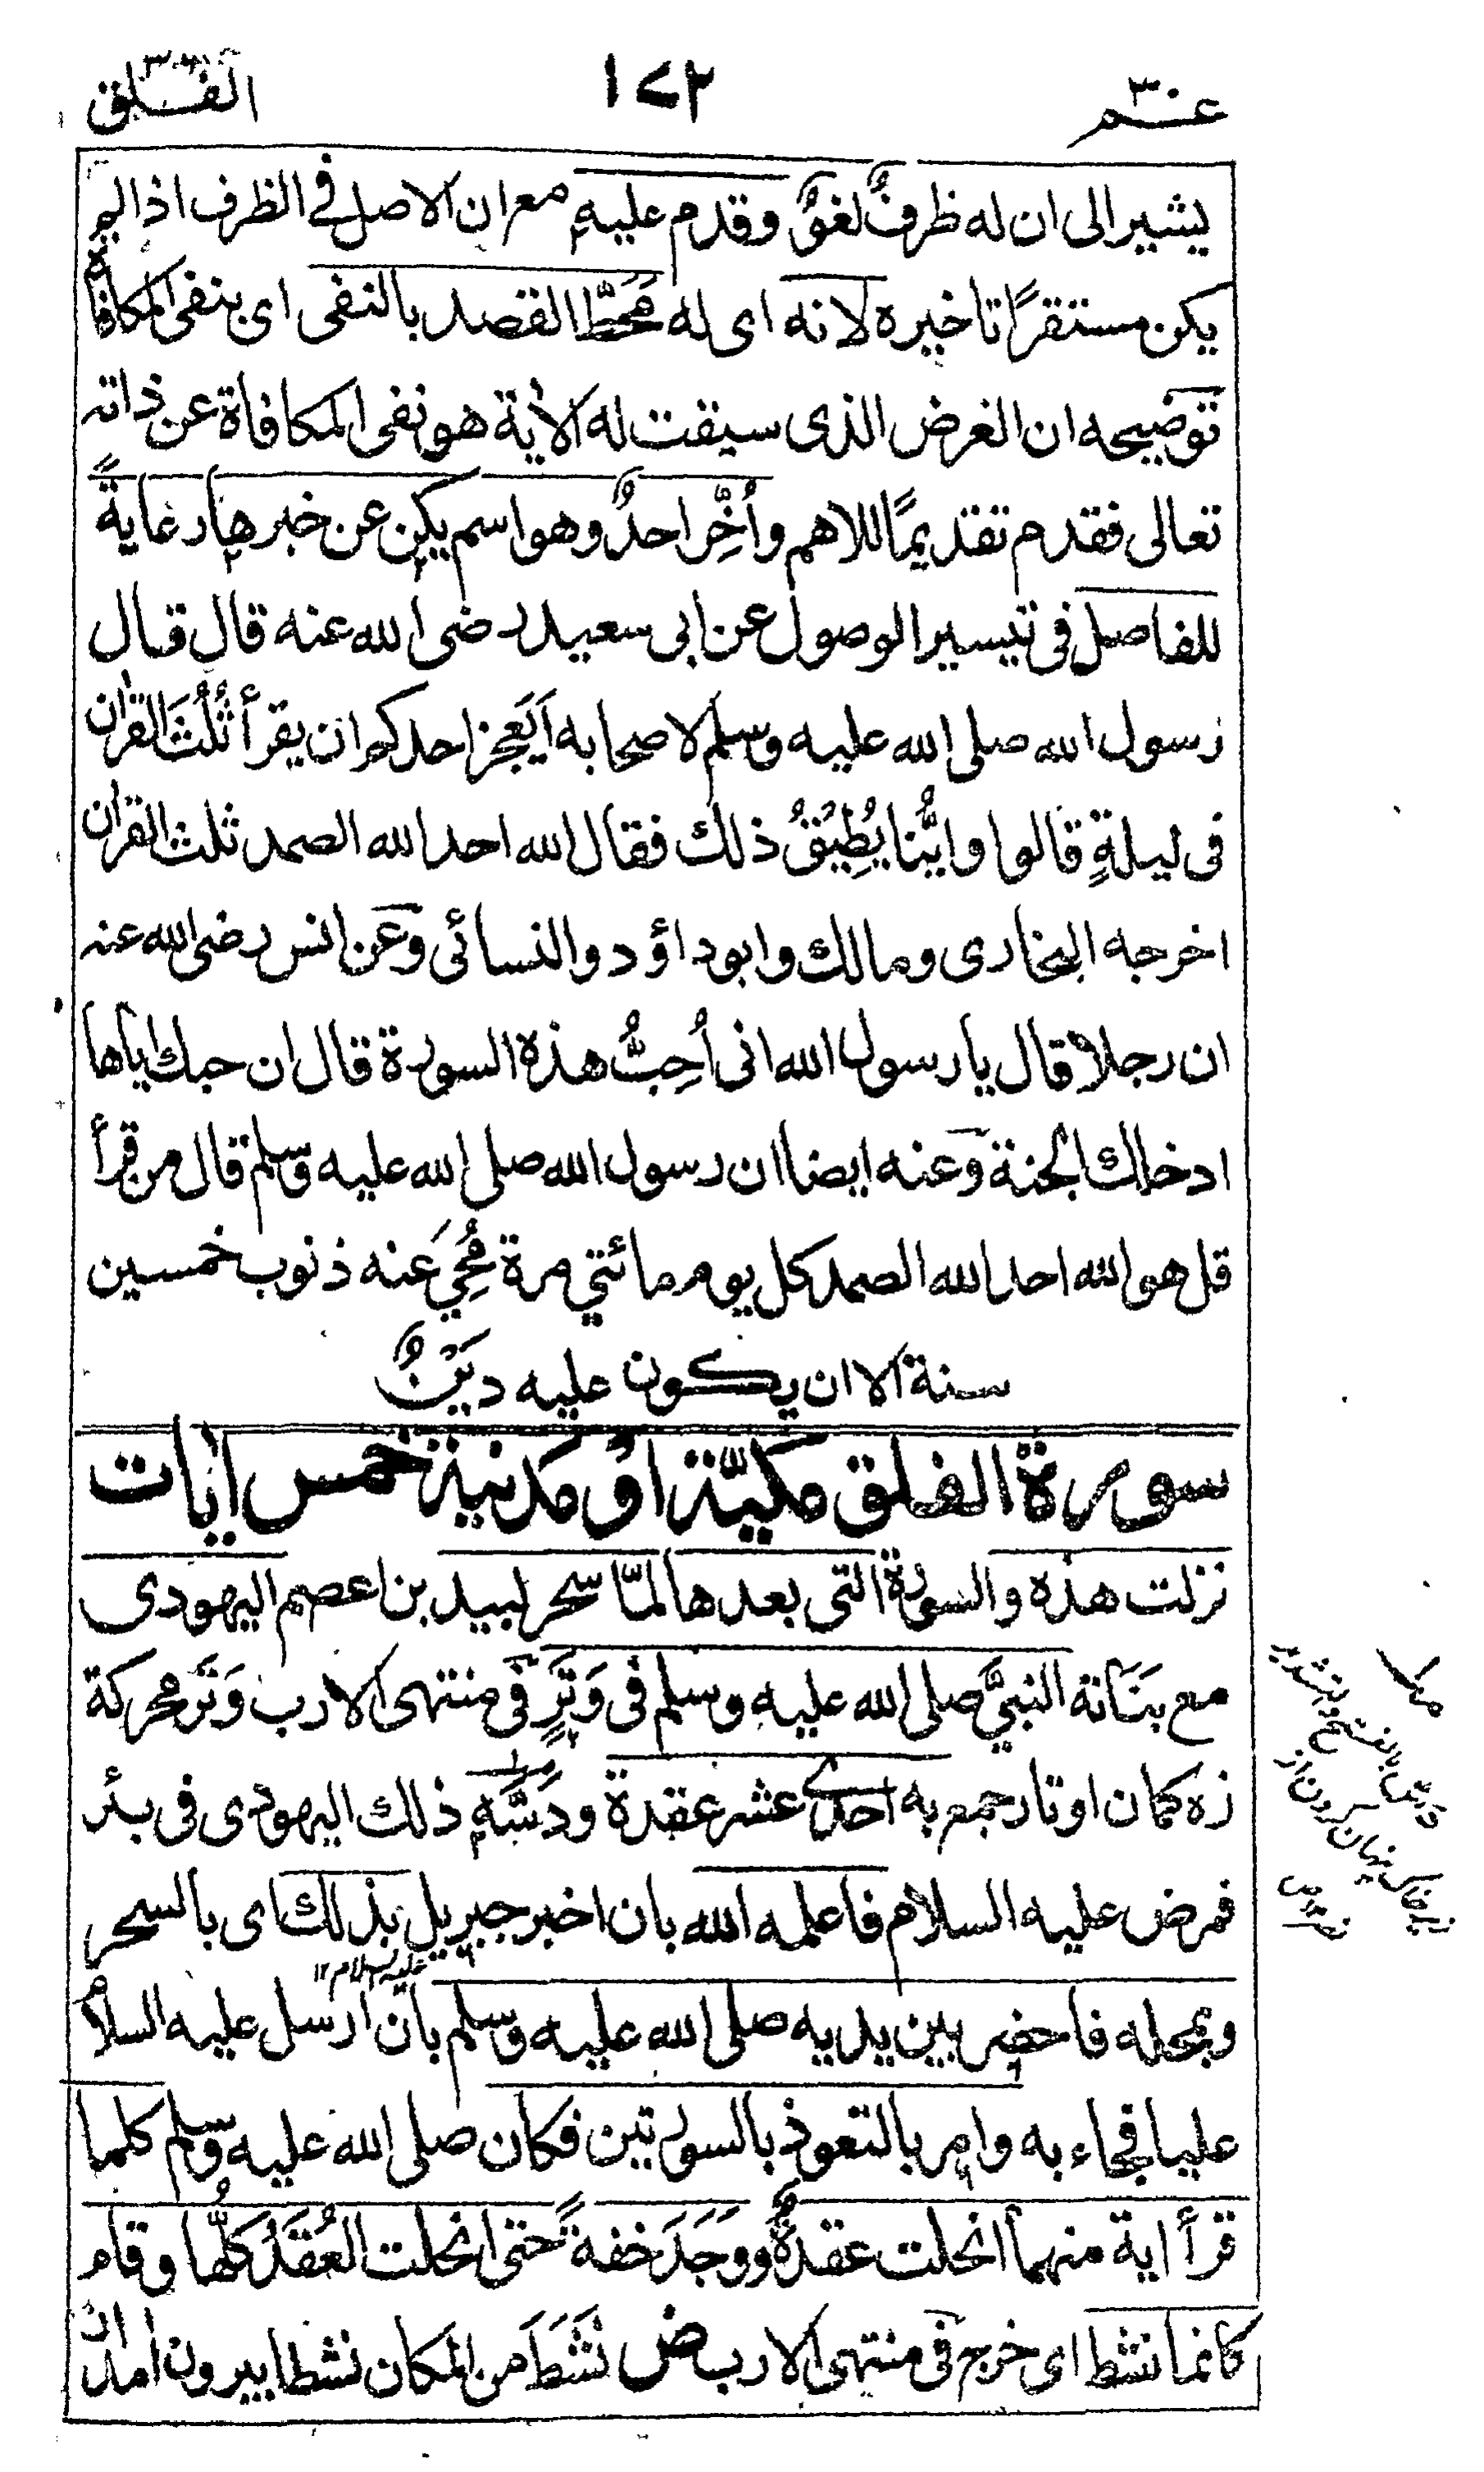 عـم ٣٠
١٧٢
الفـلق
يشير الى ان له ظرفٌ لغوٌ وقدم عليه مع ان الاصل فى الظرف اذا لم
يكن مستقرًا تاخيره لانه اى له مَحَطُّ القصد بالنفى اى بنفى المكافاة
توضيحه ان الغرض الذى سيقت له الاٰية هو نفى المكافاة عن ذاته
تعالى فقدم تقديمًا للاهم وأُخِّر احدٌ وهو اسم يكن عن خبرها رعايةً
للفاصل فى تيسير الوصول عن ابى سعيد رضى الله عنه قال قال
رسول الله صلى الله عليه وسلم لاصحابه اَيَعجز احدكم ان يقرأ ثُلُثَ القراٰن
فى ليلةٍ قالوا وايُّنا يُطِيْقُ ذلك فقال الله احد الله الصمد ثلث القراٰن
اخرجه البخارى ومالك وابوداؤد والنسائى وعن انس رضى الله عنه
ان رجلا قال يا رسول الله انى أُحِبُّ هذه السورة قال ان حبك اياها
ادخلك الجنة وعنه ايضا ان رسول الله صلى الله عليه وسلم قال من قرأ
قل هو الله احد الله الصمد كل يوم مائتي مرة مُحِيَ عنه ذنوب خمسين
سنة الا ان يكون عليه دَيْنٌ
سورة الفلق مكيّة اوْ مدنية خمس اٰيات
نزلت هذه والسورة التى بعدها لمّا سحر لبيد بن اعصم اليهودى
مع بَنَاتة النبيَّ صلى الله عليه وسلم فى وَتَرٍ فى منتهى الارب وَتَر محركة
زه كمان اوتار جمع به احدى عشر عقدة ودَسَّه ذلك اليهودى فى بئر
فمرض عليه السلام فاعلمه الله بان اخبر جبريل بذلك اى بالسحر
عليه السلام ١٢
وبمحله فاحضر بين يديه صلى الله عليه وسلم بان ارسل عليه السلام
عليا فجاء به وامر بالتعوذ بالسورتين فكان صلى الله عليه وسلم كلما
قرأ اية منهما انحلت عقدةٌ ووَجَدَ خفةً حتى انحلت العُقَدُ كلُّها وقام
كانما نشط اى خرج فى منتهى الارب ض نَشَطَ من المكان نشطا بيرون امد ازان
دس بالفتح وتشديد
زير خاك پنهان كردن از